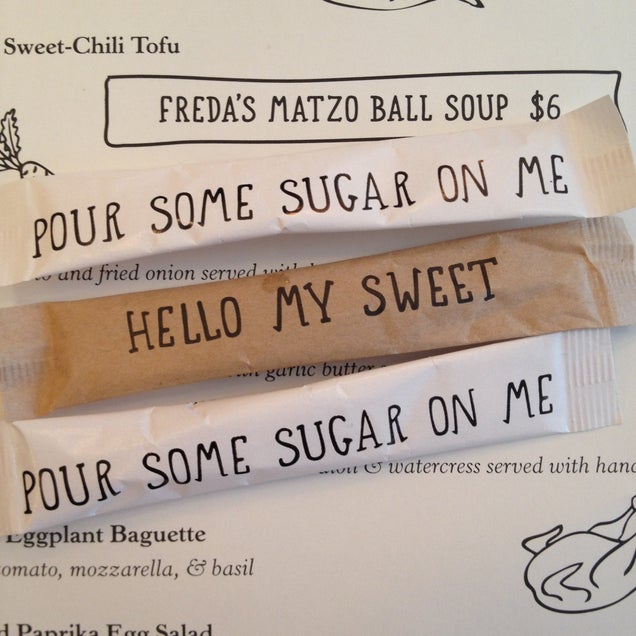 Sweet-Chili Tofu
FREDA'S MATZO BALL SOUP $6
POUR SOME SUGAR ON ME
and fried onion served
HELLO MY SWEET
garlic butter
POUR SOME SUGAR ON ME
& watercress served with
Eggplant Baguette
tomato, mozzarella, & basil
Paprika Egg Salad